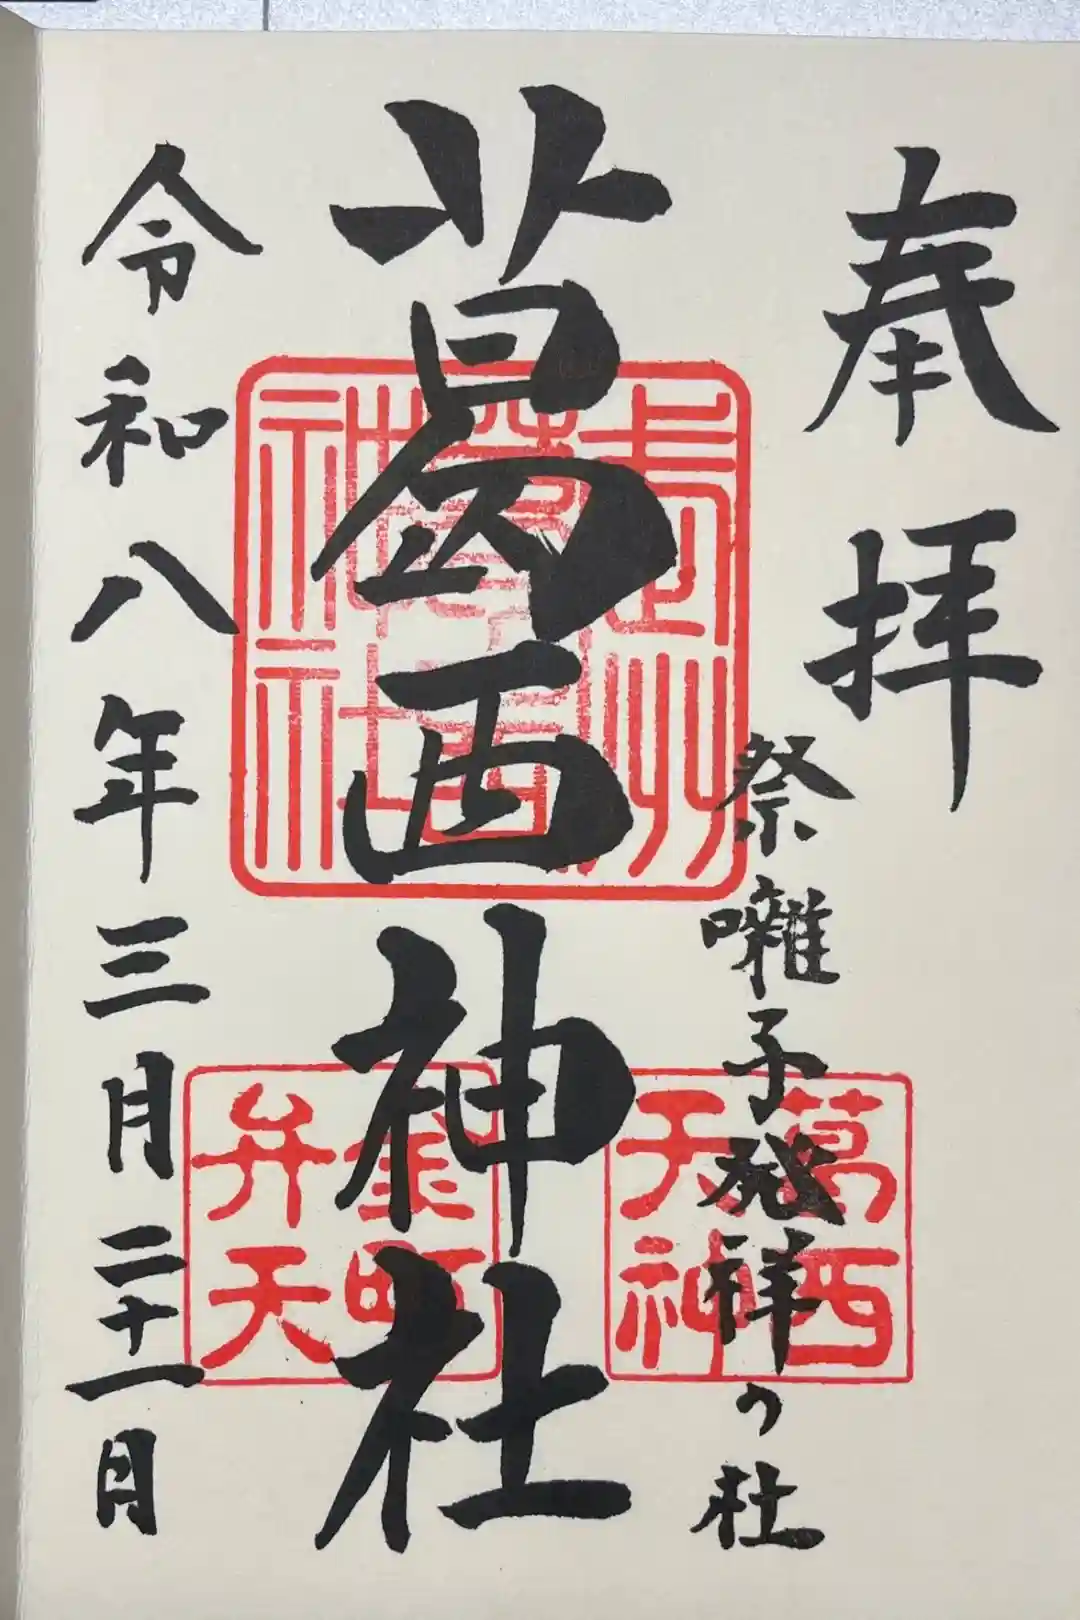 奉拝
祭囃子発祥の杜
葛西神社
令和八年三月二十一日
武州
葛西
神社
葛西
天神
金町
弁天